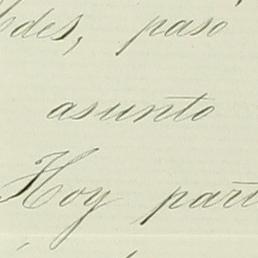 des, pasó
asunto
Hoy part